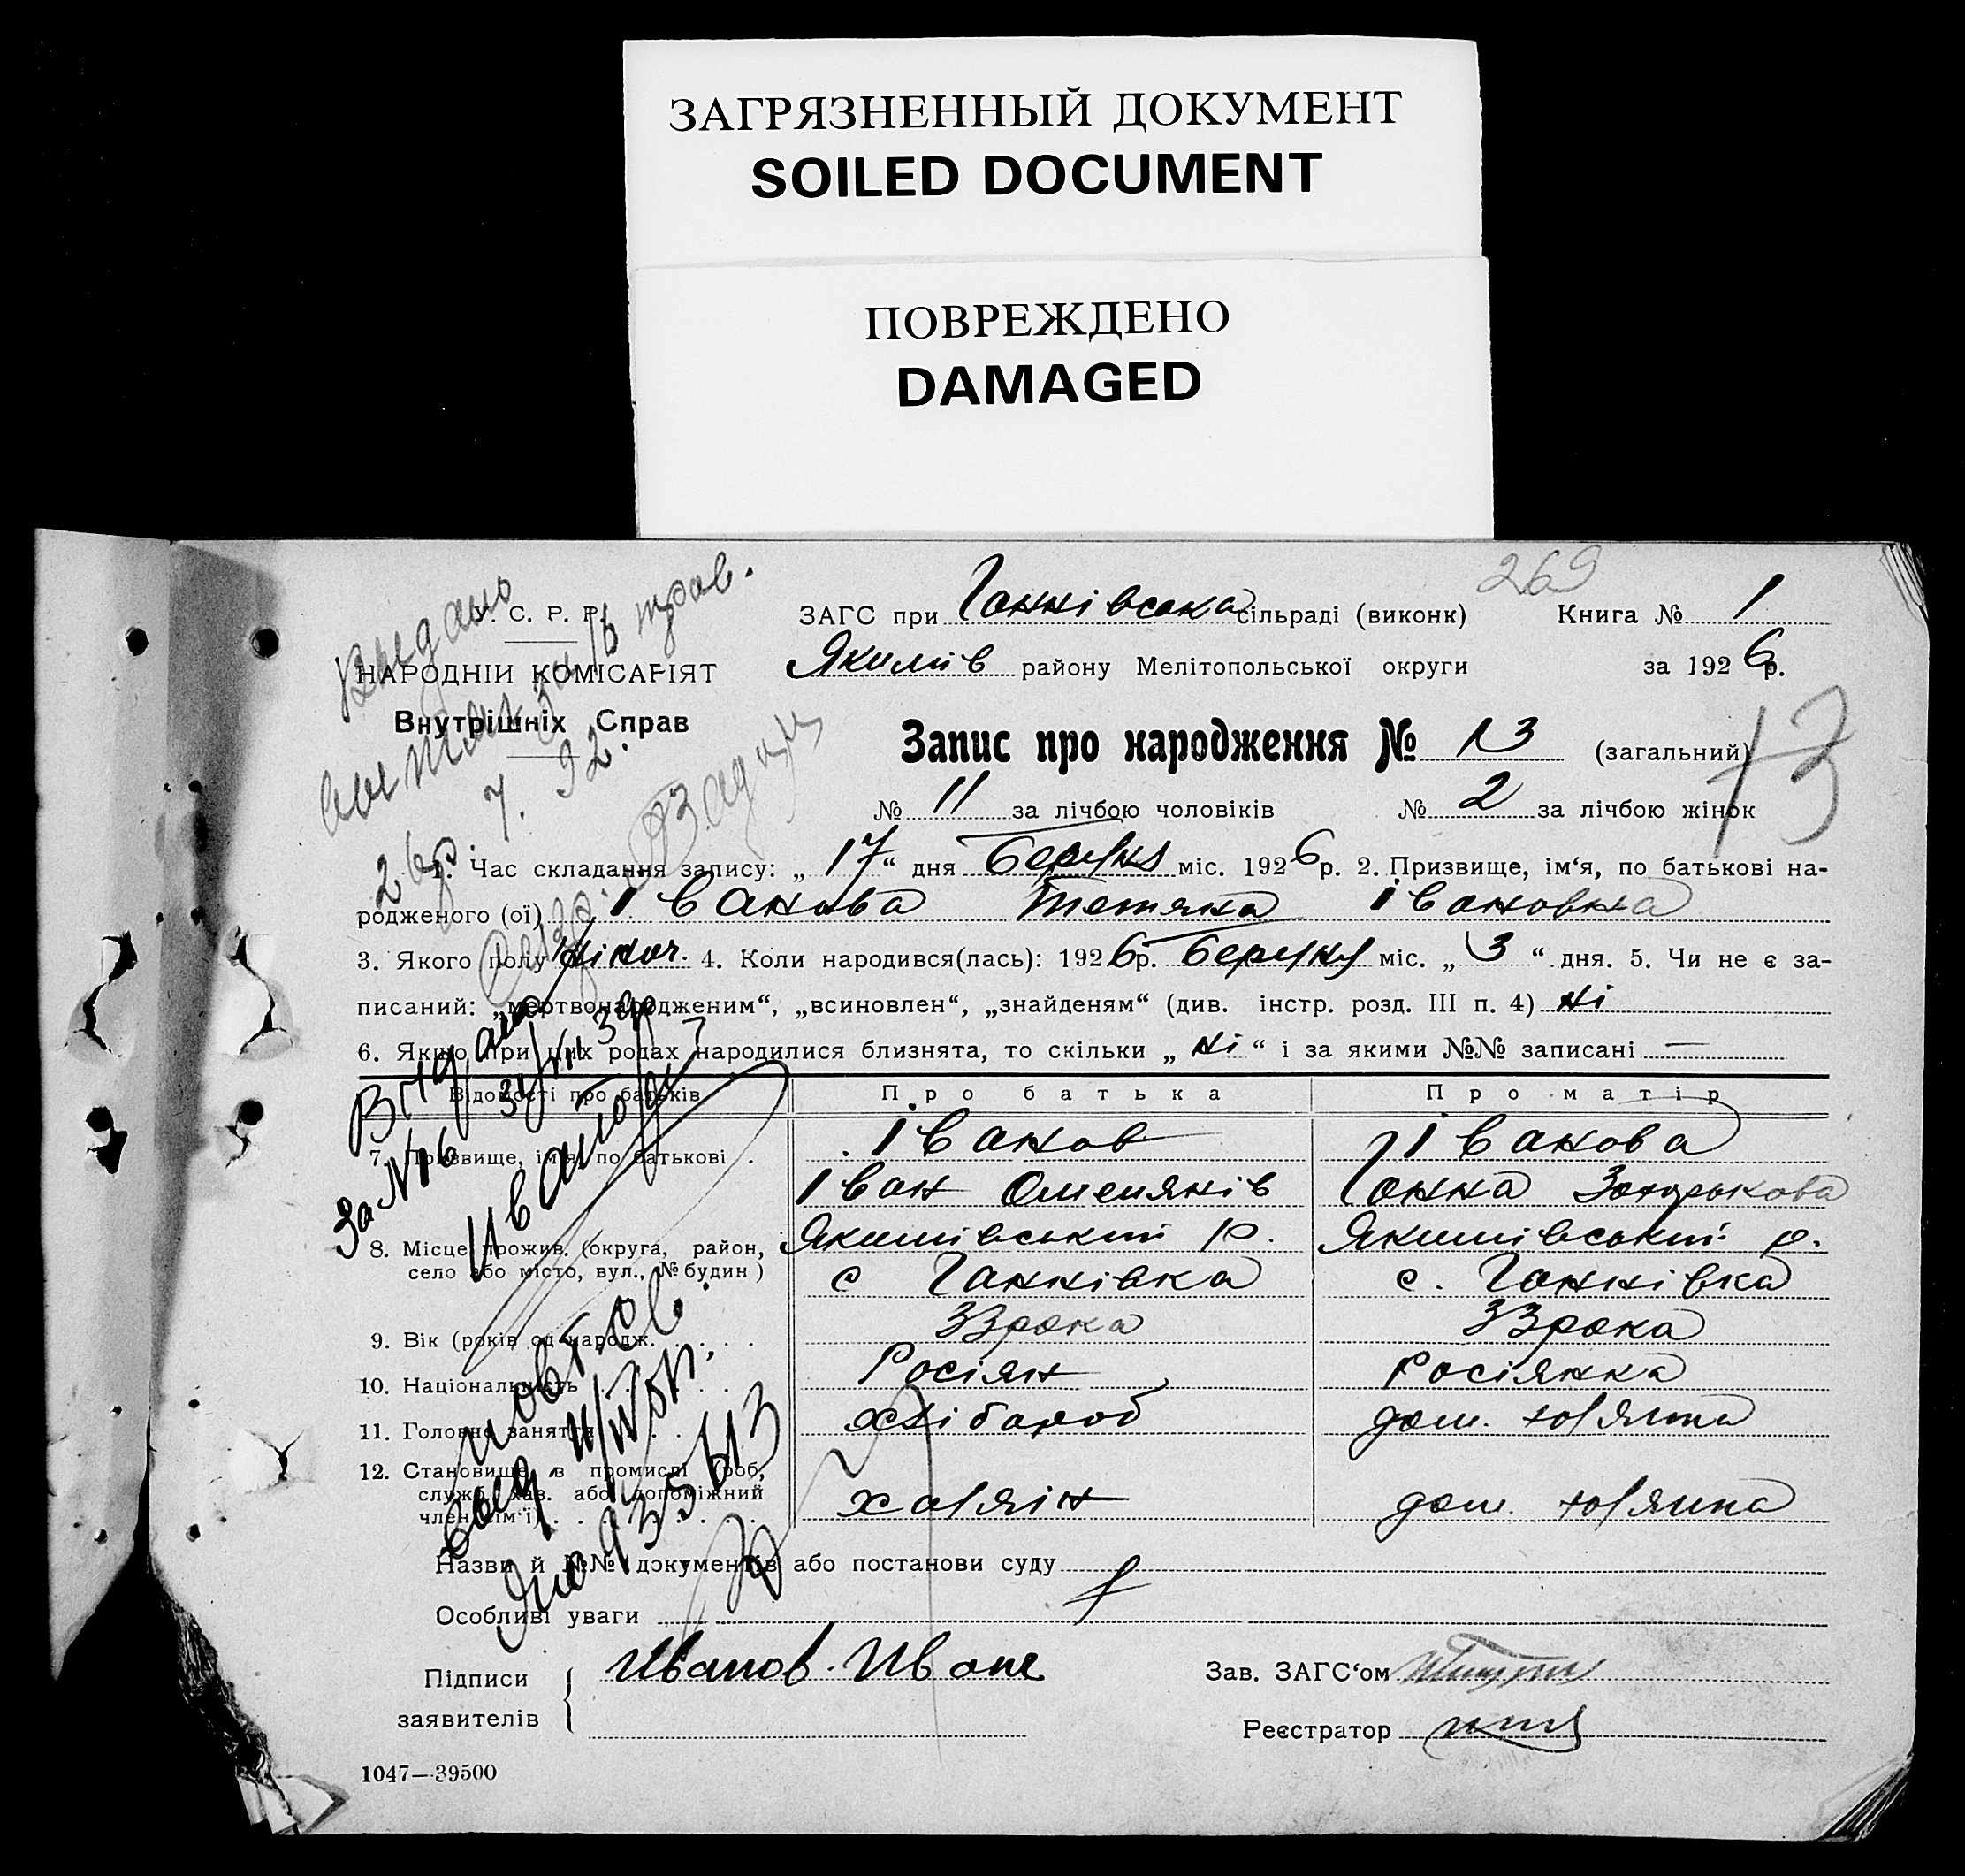 ЗАГРЯЗНЕННЫЙ ДОКУМЕНТ
SOILED DOCUMENT
ПОВРЕЖДЕНО
DAMAGED
269
У. С. Р. Р.
НАРОДНІЙ КОМІСАРІЯТ
Внутрішніх Справ
ЗАГС при Ганнівська сільраді (виконк) Книга № 1
Якимів району Мелітопольської округи за 1926 р.
Запис про народження № 13 (загальний)
13
№ 11 за лічбою чоловіків № 2 за лічбою жінок
1. Час складання запису: „ 17 “ дня Березня міс. 1926 р. 2. Призвище, ім‘я, по батькові на-
родженого (ої) Іванова Тетяна Івановна
3. Якого полу жіноч. 4. Коли народився(лась): 1926 р. Березня міс. „ 3 “ дня. 5. Чи не є за-
писаний: „мертвонародженим“, „всиновлен“, „знайденям“ (див. інстр. розд. III п. 4) ні
6. Якщо при цих родах народилися близнята, то скільки „ ні “ і за якими №№ записані —
Відомості про батьків Про батька Про матір
7. Призвище, ім‘я, по батькові . Іванов Іванова
Іван Ганна
8. Місце прожив. (округа, район, Якимівський р. Якимівський р.
село або місто, вул., № будин) с Ганнівка с. Ганнівка
9. Вік (років од народж. 33 рока 33 рока
10. Національність Росіян Росіянка
11. Головне заняття хлібороб дом. хозяйка
12. Становище в промислі (роб,
служб, хаз. або допоміжний хазяїн дом. хозяйка
член сім‘ї)
Назви й №№ документів або постанови суду
Особливі уваги
Підписи Иванов Иван Зав. ЗАГС‘ом
заявителів Реєстратор
1047—39500
Выдано
26/
7. 92.
Видано
31/VII 39
За №16
Иванов
повт. св.
выд 11/IV
935613